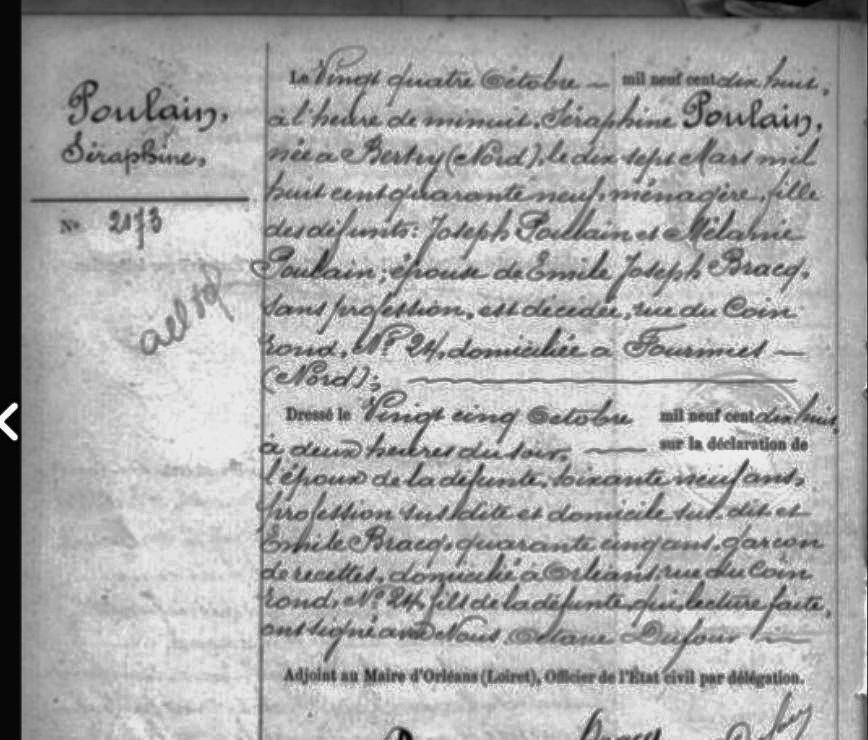 Poulain,
Séraphine,
N° 2173
Le Vingt quatre Octobre — mil neuf cent dix huit,
à l'heure de minuit, Séraphine Poulain,
née à Bertry (Nord), le dix sept Mars mil
huit cent quarante neuf, ménagère, fille
des défunts: Joseph Poulain et Mélanie
Poulain; épouse de Emile Joseph Bracq,
sans profession, est décédée, rue du Coin
rond, N° 24, domiciliée à Fourmies —
(Nord);
Dressé le Vingt cinq Octobre mil neuf cent dix huit,
à deux heures du soir, — sur la déclaration de
l'époux de la défunte, soixante neuf ans,
profession susdite et domicile sus-dit et
Emile Bracq, quarante cinq ans, garçon
de recettes, domicilié à Orléans, rue du Coin
rond, N° 24, fils de la défunte, qui, lecture faite,
ont signé avec Nous, Octave Dufour —
Adjoint au Maire d'Orléans (Loiret), Officier de l'État civil par délégation.
Bracq